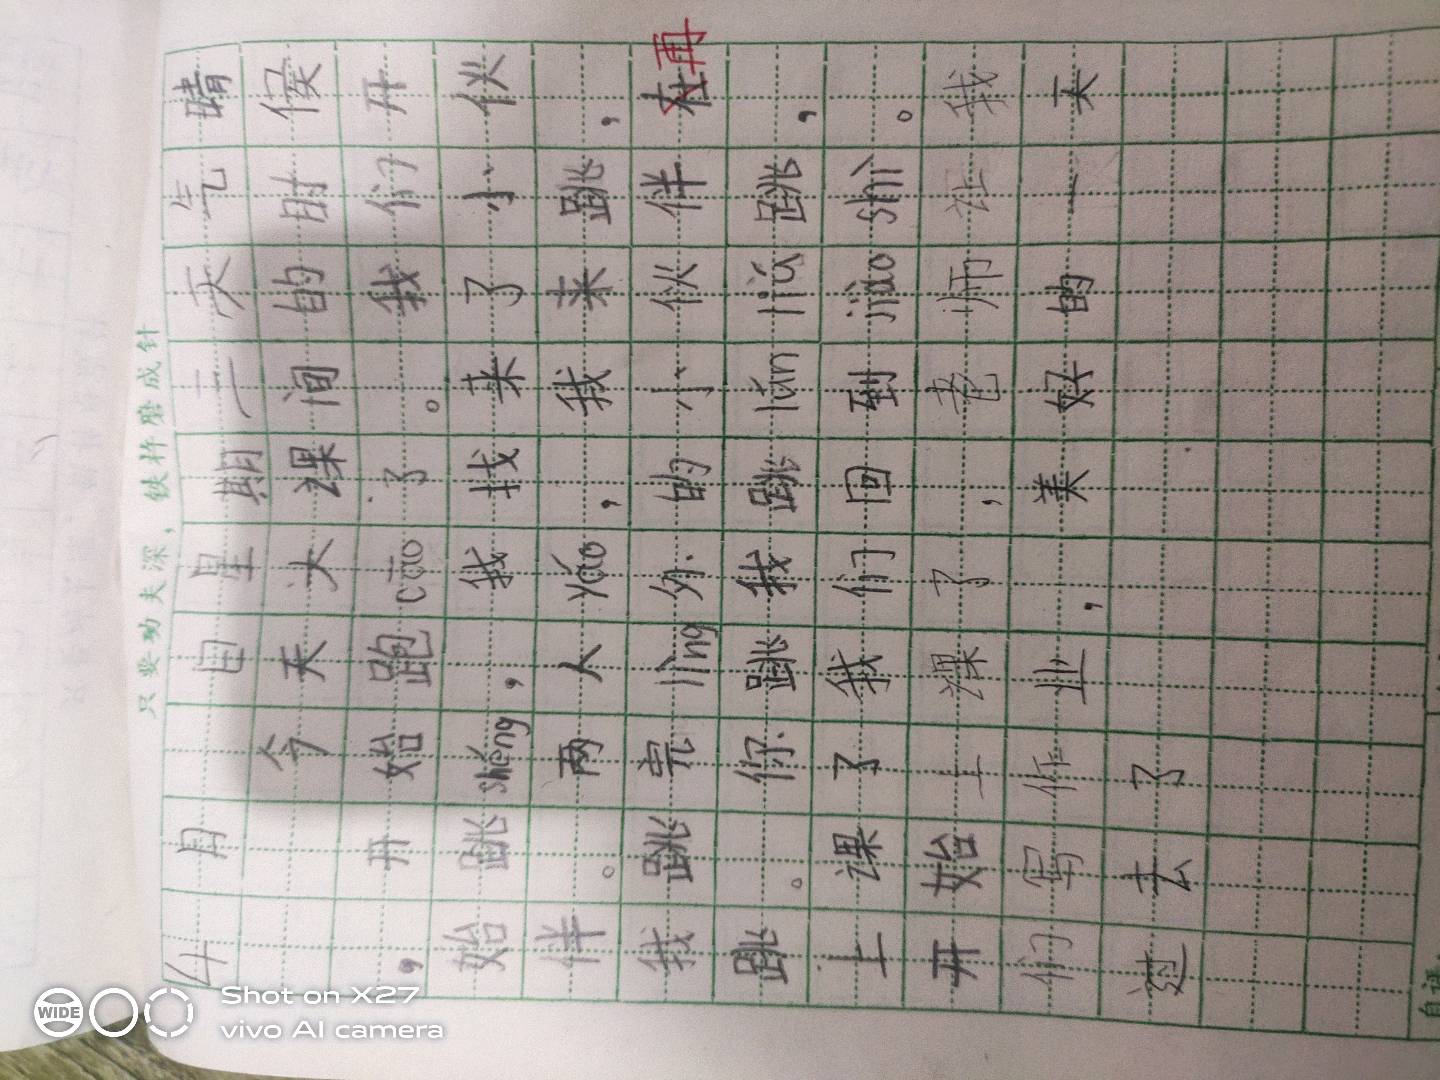 只要功夫深，铁杵磨成针
4月 日星期二天气晴
今天大课间的时侯
，开始跑cāo了。我们开
始跳shéng，我找来了小伙
伴。两人yáo，我来跳，
我跳完lìng外的小伙伴在再
跳。你跳我跳lún liú跳，
上课了我们回到jiào shì。
开始上课了，老师让我
们写作业，美好的一天
过去了
WIDE
Shot on X27
vivo AI camera